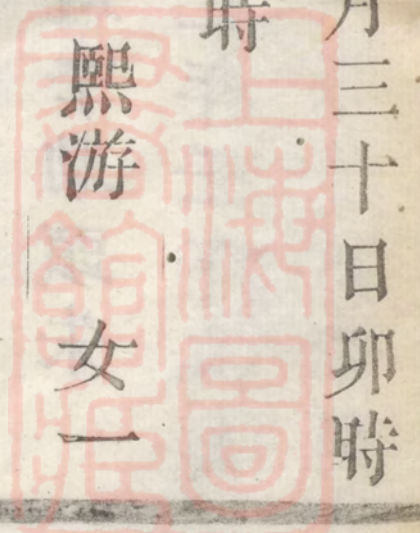 月三十日卯時
時
熙游 女一
上海圖
書館藏